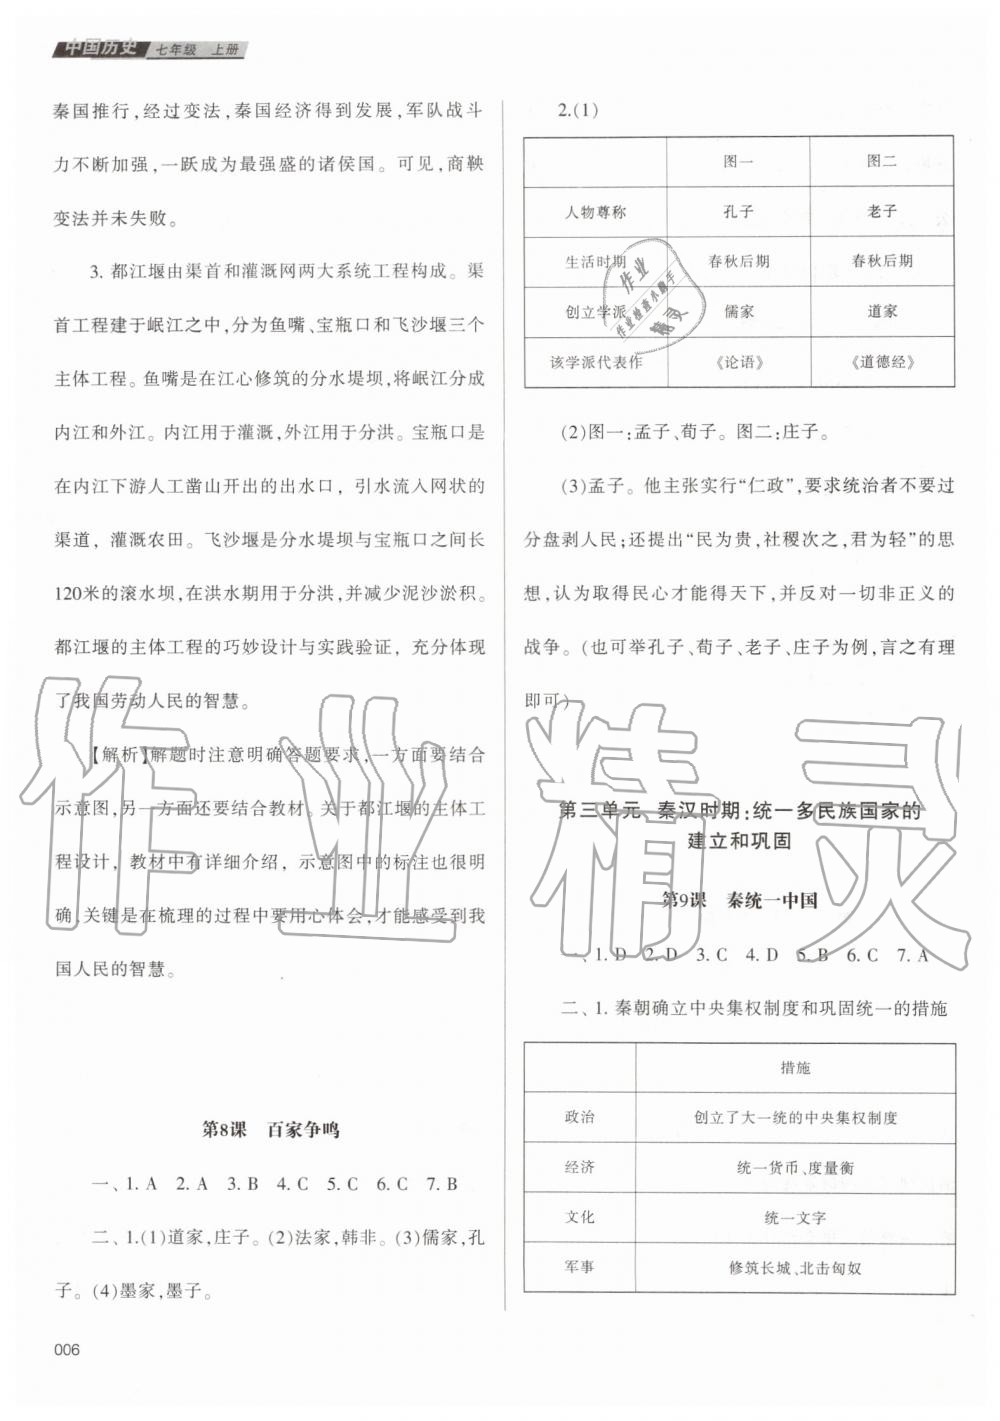 中国历史 七年级 上册
秦国推行,经过变法,秦国经济得到发展,军队战斗
力不断加强,一跃成为最强盛的诸侯国。可见,商鞅
变法并未失败。
3. 都江堰由渠首和灌溉网两大系统工程构成。渠
首工程建于岷江之中,分为鱼嘴、宝瓶口和飞沙堰三个
主体工程。鱼嘴是在江心修筑的分水堤坝,将岷江分成
内江和外江。内江用于灌溉,外江用于分洪。宝瓶口是
在内江下游人工凿山开出的出水口，引水流入网状的
渠道，灌溉农田。飞沙堰是分水堤坝与宝瓶口之间长
120米的滚水坝,在洪水期用于分洪,并减少泥沙淤积。
都江堰的主体工程的巧妙设计与实践验证，充分体现
了我国劳动人民的智慧。
【解析】解题时注意明确答题要求,一方面要结合
示意图,另一方面还要结合教材。关于都江堰的主体工
程设计，教材中有详细介绍，示意图中的标注也很明
确,关键是在梳理的过程中要用心体会,才能感受到我
国人民的智慧。
第8课 百家争鸣
一、1. A 2. A 3. B 4. C 5. C 6. C 7. B
二、1.(1)道家,庄子。(2)法家,韩非。(3)儒家,孔
子。(4)墨家,墨子。
006
2.(1)
图一 图二
人物尊称 孔子 老子
生活时期 春秋后期 春秋后期
创立学派 儒家 道家
该学派代表作 《论语》 《道德经》
(2)图一:孟子、荀子。图二:庄子。
(3)孟子。他主张实行“仁政”,要求统治者不要过
分盘剥人民;还提出“民为贵,社稷次之,君为轻”的思
想,认为取得民心才能得天下,并反对一切非正义的
战争。(也可举孔子、荀子、老子、庄子为例,言之有理
即可)
第三单元 秦汉时期:统一多民族国家的
建立和巩固
第9课 秦统一中国
一、1. D 2. D 3. C 4. D 5. B 6. C 7. A
二、1. 秦朝确立中央集权制度和巩固统一的措施
措施
政治 创立了大一统的中央集权制度
经济 统一货币、度量衡
文化 统一文字
军事 修筑长城、北击匈奴
作业精灵
作业
作业检查小助手
精灵